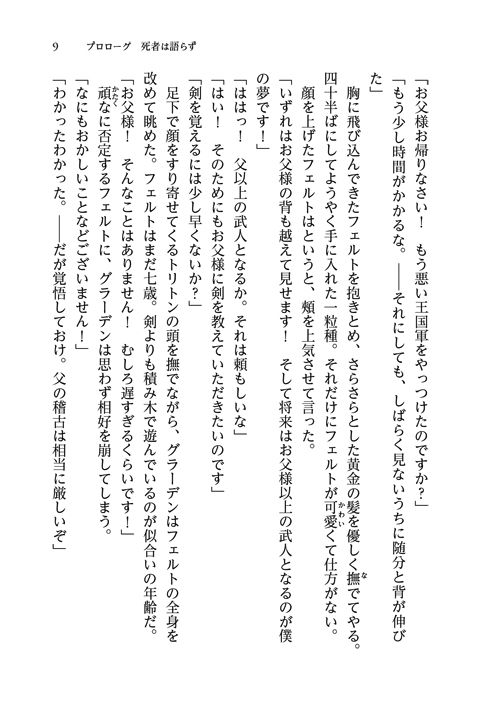 9　プロローグ　死者は語らず
「お父様お帰りなさい！　もう悪い王国軍をやっつけたのですか？」
「もう少し時間がかかるな。――それにしても、しばらく見ないうちに随分と背が伸び
た」
　胸に飛び込んできたフェルトを抱きとめ、さらさらとした黄金の髪を優しく撫でてやる。
四十半ばにしてようやく手に入れた一粒種。それだけにフェルトが可愛くて仕方がない。
　顔を上げたフェルトはというと、頬を上気させて言った。
「いずれはお父様の背も越えて見せます！　そして将来はお父様以上の武人となるのが僕
の夢です！」
「ははっ！　父以上の武人となるか。それは頼もしいな」
「はい！　そのためにもお父様に剣を教えていただきたいのです」
「剣を覚えるには少し早くないか？」
　足下で顔をすり寄せてくるトリトンの頭を撫でながら、グラーデンはフェルトの全身を
改めて眺めた。フェルトはまだ七歳。剣よりも積み木で遊んでいるのが似合いの年齢だ。
「お父様！　そんなことはありません！　むしろ遅すぎるくらいです！」
　頑なに否定するフェルトに、グラーデンは思わず相好を崩してしまう。
「なにもおかしいことなどございません！」
「わかったわかった。――だが覚悟しておけ。父の稽古は相当に厳しいぞ」